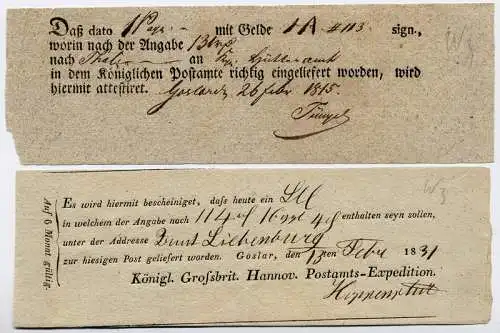 Daß dato 1 Pag. mit Gelde 1 A # 113 sign.,
worin nach der Angabe
nach an
in dem Königlichen Postamte richtig eingeliefert worden, wird
hiermit attestiret. Goslar d. 26 febr 1815.
W3
Auf 6 Monat gültig.
Es wird hiermit bescheiniget, daß heute ein
in welchem der Angabe nach 114 16 4 enthalten seyn sollen,
unter der Addresse Amt Liebenburg
zur hiesigen Post geliefert worden. Goslar, den 13ten Febr 1831
Königl. Großbrit. Hannov. Postamts-Expedition.
W3